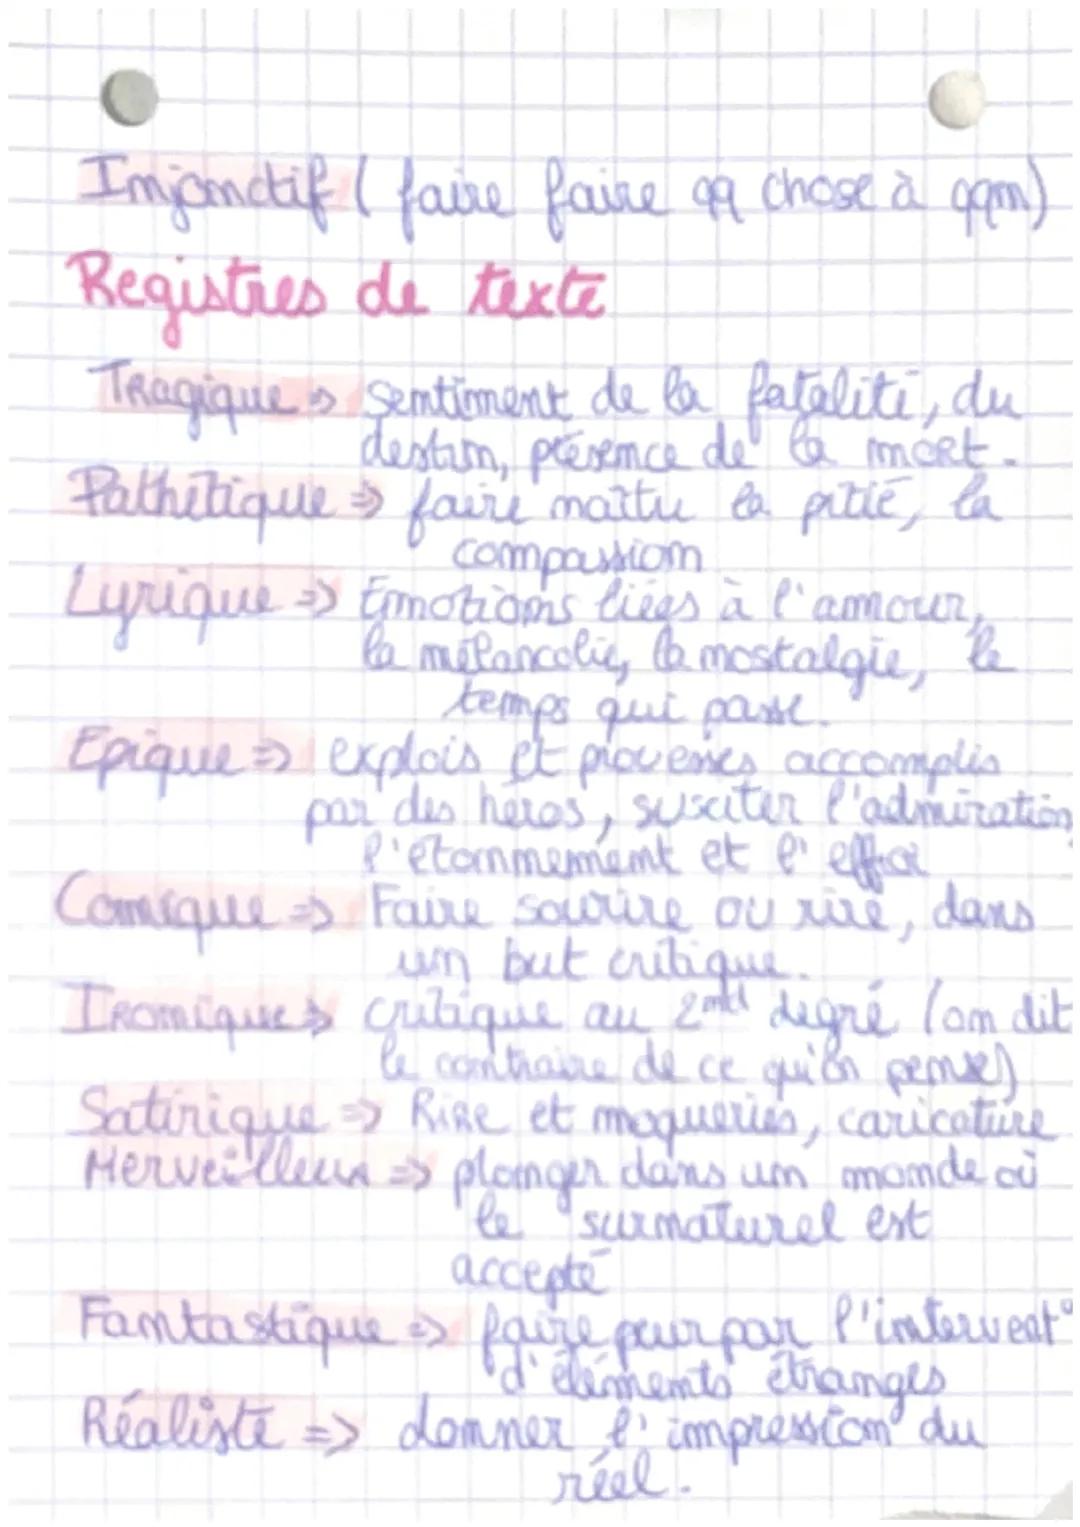 Injonctif ( faire faire qq chose à qqn)
Registres de texte
Tragique => sentiment de la fatalité, du
destin, présence de la mort.
Pathétique => faire naître la pitié, la
compassion
Lyrique => Emotions liées à l'amour,
la mélancolie, la nostalgie, le
temps qui passe.
Epique => explois et prouesses accomplis
par des héros, susciter l'admiration
l'étonnement et l'effroi
Comique => Faire sourire ou rire, dans
un but critique.
Ironique => critique au 2nd degré (on dit
le contraire de ce qu'on pense)
Satirique => Rire et moqueries, caricature
Merveilleux => plonger dans un monde où
le surnaturel est
accepté
Fantastique => faire peur par l'intervent°
d'éléments étranges
Réaliste => donner l'impression du
réel.